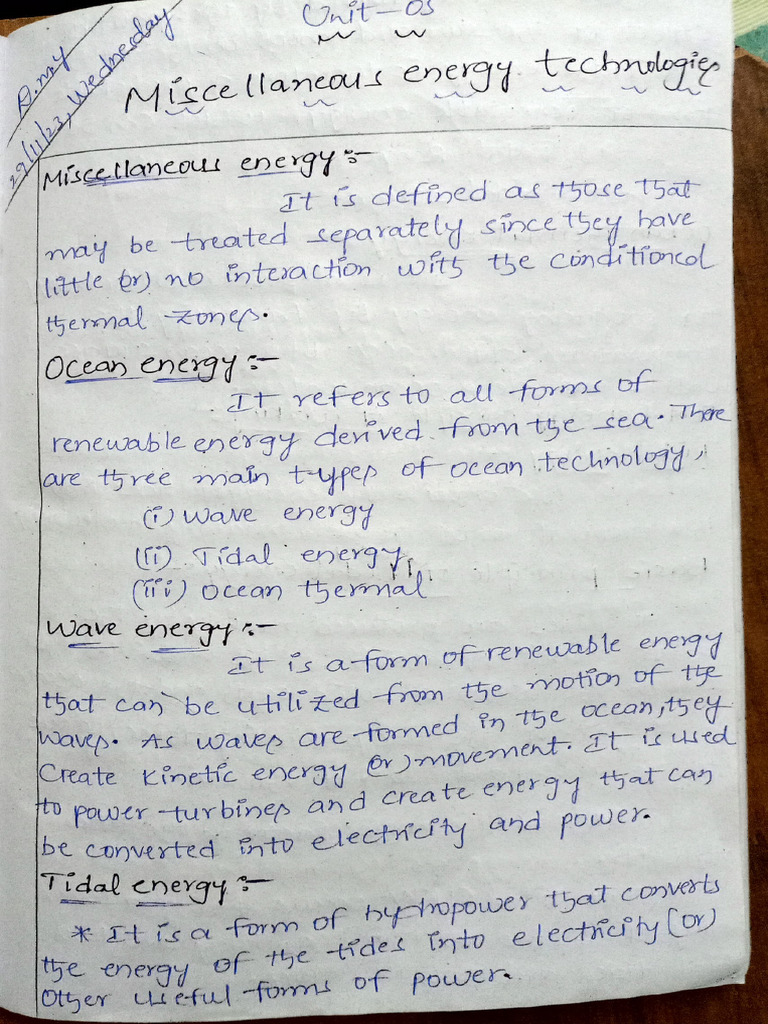 Unit-05
29/11/23, Wednesday
Miscellaneous energy technologies
Miscellaneous energy:-
It is defined as those that
may be treated separately since they have
little (or) no interaction with the conditioned
thermal zones.
Ocean energy:-
It refers to all forms of
renewable energy derived from the sea. There
are three main types of ocean technology,
(i) Wave energy
(ii) Tidal energy
(iii) Ocean thermal
Wave energy:-
It is a form of renewable energy
that can be utilized from the motion of the
waves. As waves are formed in the ocean, they
Create Kinetic energy (or) movement. It is used
to power turbines and create energy that can
be converted into electricity and power.
Tidal energy:-
* It is a form of hydropower that converts
the energy of the tides into electricity (or)
Other useful forms of power.